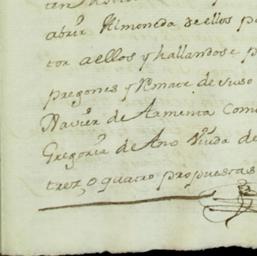 abrir Almoneda de ellos p
tor a ellos y hallandose p
pregones y Remate de suso
Xavier de Armenta Com
Gregoria de Aro Viuda de
trez, o quatro propuestas